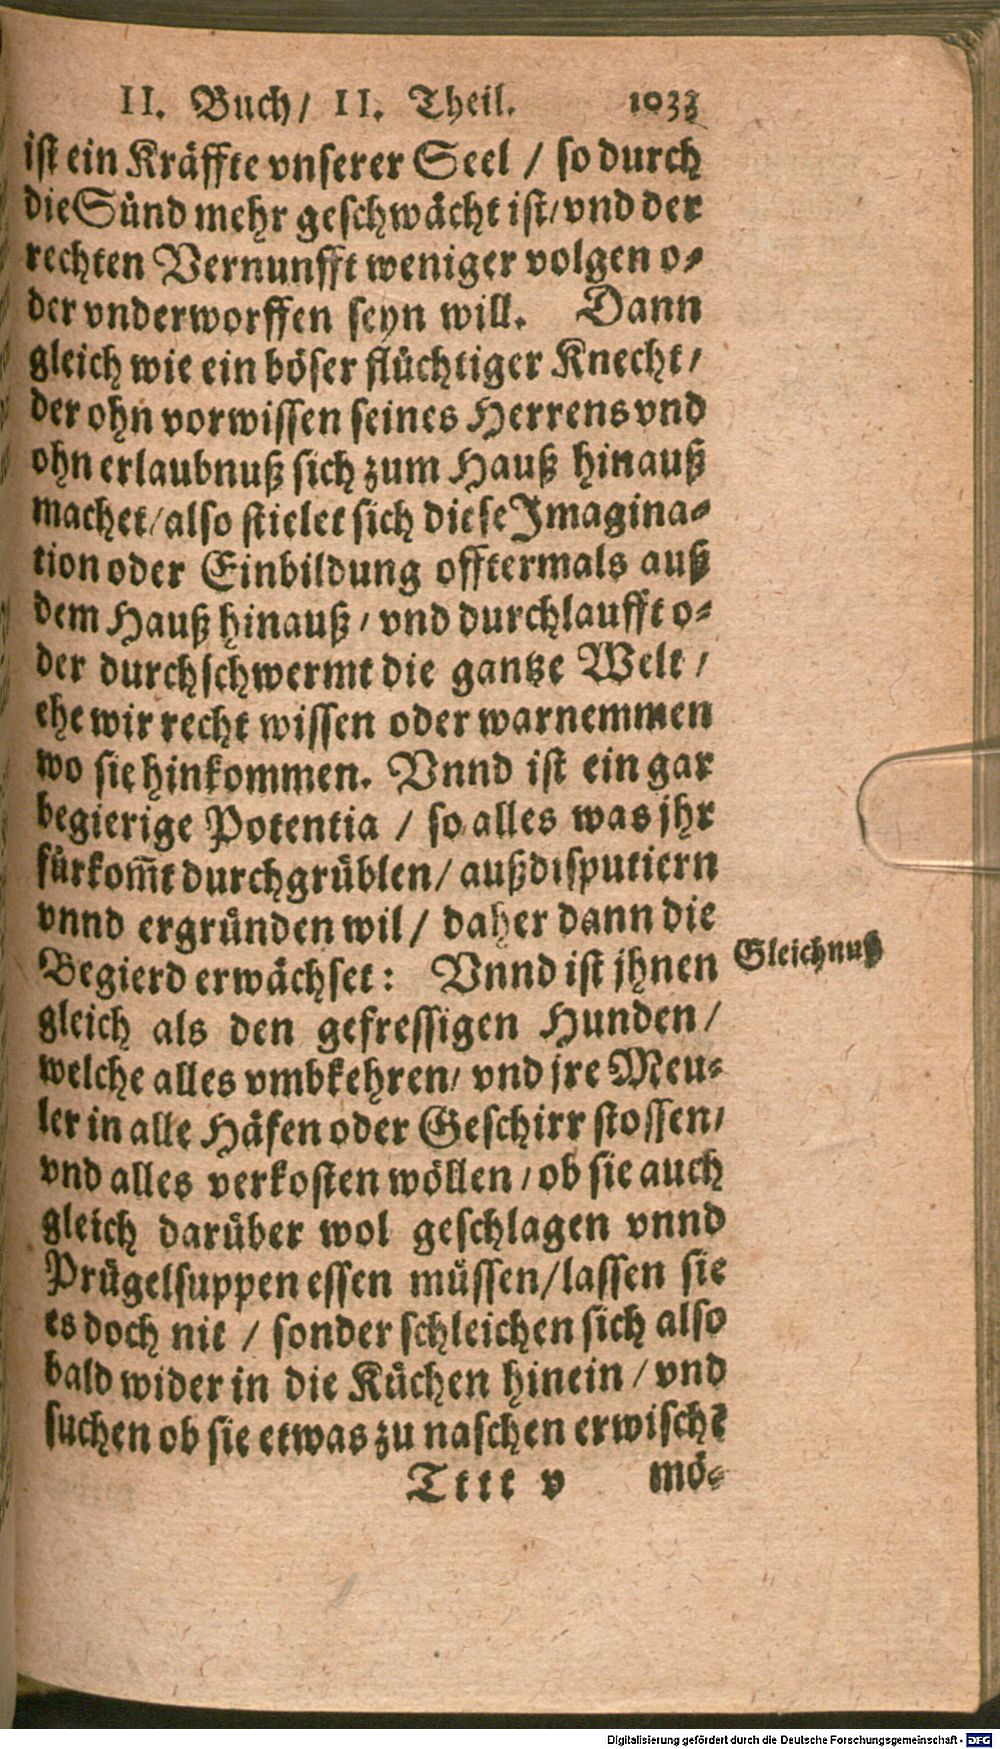 II. Buch/ II. Theil. 1033
ist ein Kräffte vnserer Seel / so durch
die Sünd mehr geschwächt ist/ vnd der
rechten Vernunfft weniger volgen o-
der vnderworffen seyn will. Dann
gleich wie ein böser flüchtiger Knecht/
der ohn vorwissen seines Herrens vnd
ohn erlaubnuß sich zum Hauß hinauß
machet/ also stielet sich diese Imagina-
tion oder Einbildung offtermals auß
dem Hauß hinauß / vnd durchlaufft o-
der durchschwermt die gantze Welt /
ehe wir recht wissen oder warnemmen
wo sie hinkommen. Vnnd ist ein gar
begierige Potentia / so alles was jhr
fürkom̅t durchgrüblen/ außdisputiern
vnnd ergründen wil / daher dann die
Begierd erwächset: Vnnd ist jhnen
Gleichnuß
gleich als den gefressigen Hunden /
welche alles vmbkehren/ vnd jre Meu-
ler in alle Häfen oder Geschirr stossen/
vnd alles verkosten wöllen / ob sie auch
gleich darüber wol geschlagen vnnd
Prügelsuppen essen müssen/ lassen sie
es doch nit / sonder schleichen sich also
bald wider in die Küchen hinein / vnd
suchen ob sie etwas zu naschen erwischt
Tttt v mö-
Digitalisierung gefördert durch die Deutsche Forschungsgemeinschaft - DFG